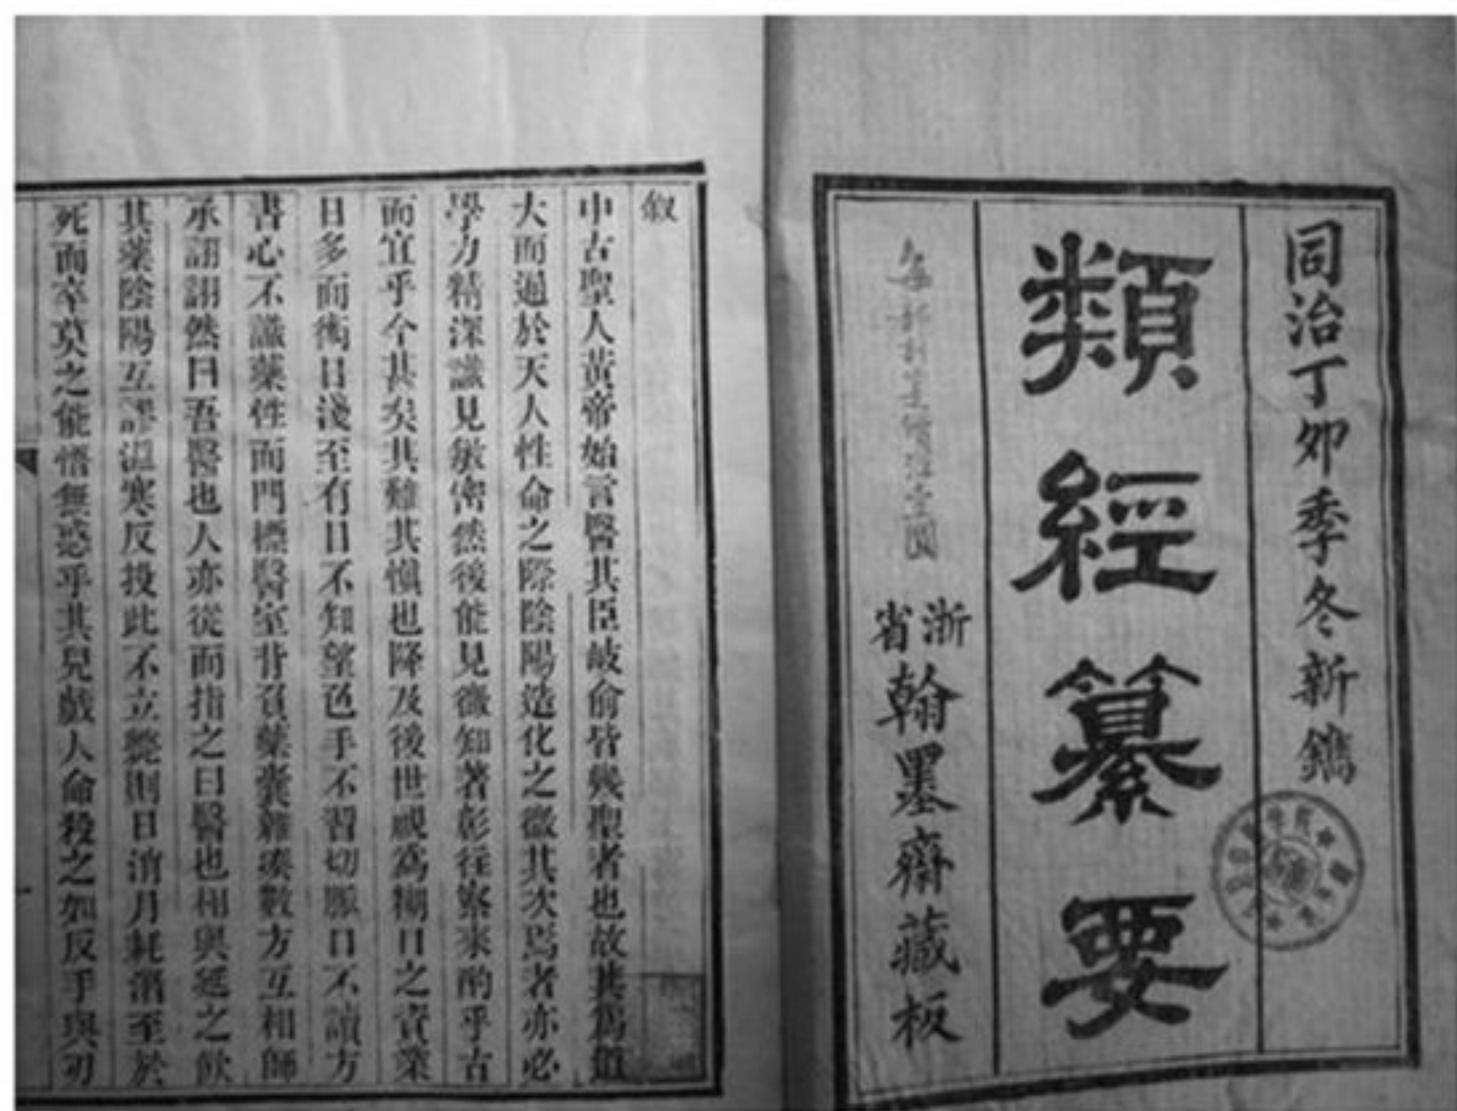 同治丁卯季冬新鐫
類經纂要
浙省翰墨齋藏板
叙
中古聖人黃帝始言醫其臣岐俞皆幾聖者也故其爲道
大而通於天人性命之際陰陽造化之微其次焉者亦必
學力精深識見敏密然後能見微知著彰往察來酌乎古
而宜乎今甚矣其難其慎也降及後世視爲糊口之資業
日多而術日淺至有目不知望色手不習切脈口不讀方
書心不識藥性而門標醫室背負藥囊雜湊數方互相師
承詡詡然曰吾醫也人亦從而指之曰醫也相與延之飲
其藥陰陽互謬溫寒反投此不立斃則日消月耗漸至於
死而卒莫之能悟無惑乎其兒戲人命殺之如反手與刃